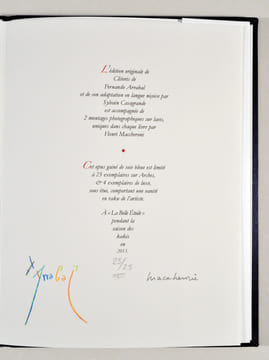 L'édition originale de
Clitoris de
Fernando Arrabal
et de son adaptation en langue niçoise par
Sylvain Casagrande
est accompagnée de
2 montages photographiques sur lavis,
uniques dans chaque livre par
Henri Maccheroni
Cet opus gainé de soie bleue est limité
à 25 exemplaires sur Arches,
& 4 exemplaires de luxe,
sous étui, comportant une vanité
en talca de l'artiste.
A « La Belle Étoile »
pendant la
saison des
kakis
en
2013.
25/25
Arrabal
Maccheroni